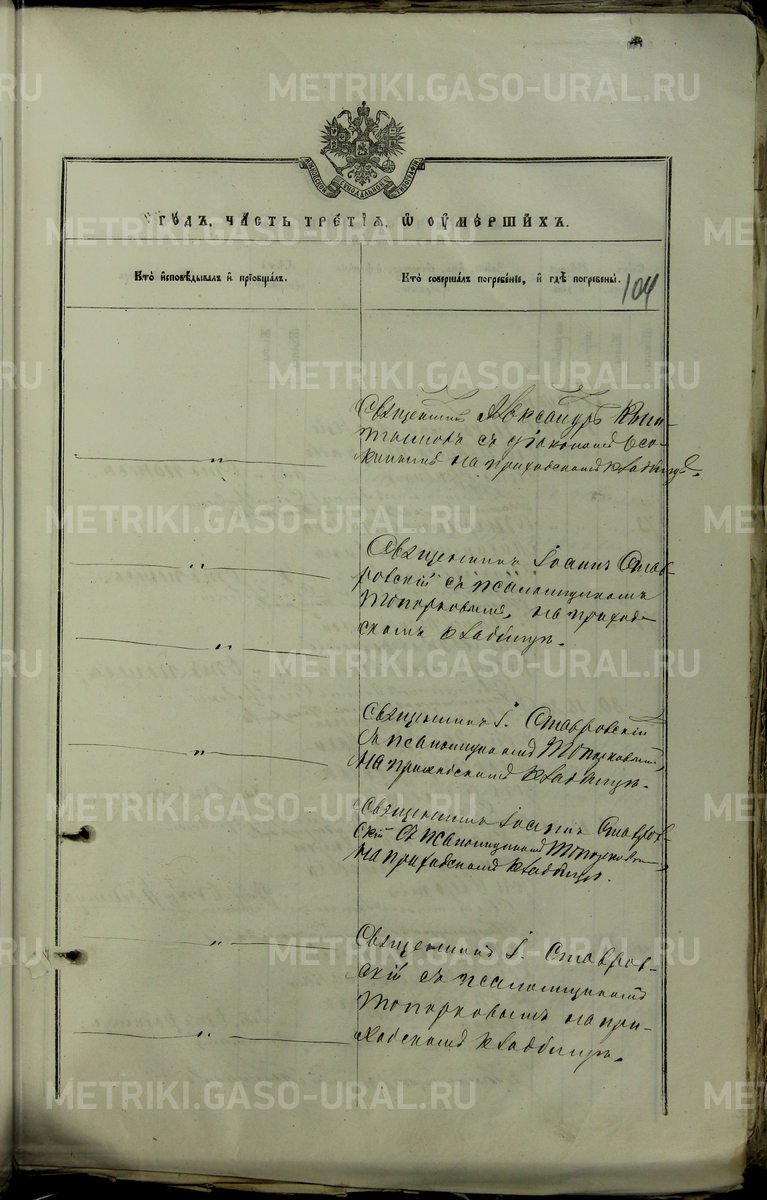 METRIKI.GASO-URAL.RU
МОСКОВСКОЙ СѴНОДАЛЬНОЙ ТИПОГРАФІИ
ГОДЪ, ЧАСТЬ ТРЕТІѦ, Ѡ ОУМЕРШИХЪ.
Кто исповѣдывалъ и пріобщалъ.
Кто совершалъ погребеніе, и гдѣ погребены.
104
Священникъ Александръ
съ діакономъ Осо-
кинымъ на приходскомъ кладбищѣ.
Священникъ Іоаннъ Став-
ровскій съ псаломщикомъ
Топорковымъ, на приход-
скомъ кладбищѣ.
Священникъ І. Ставровскій
съ псаломщикомъ Топорковымъ,
на приходскомъ кладбищѣ.
Священникъ Іоаннъ Ставров-
скій съ псаломщикомъ Топорковым
на приходскомъ кладбищѣ.
Священникъ І. Ставров-
скій съ псаломщикомъ
Топорковымъ на при-
ходскомъ кладбищѣ.